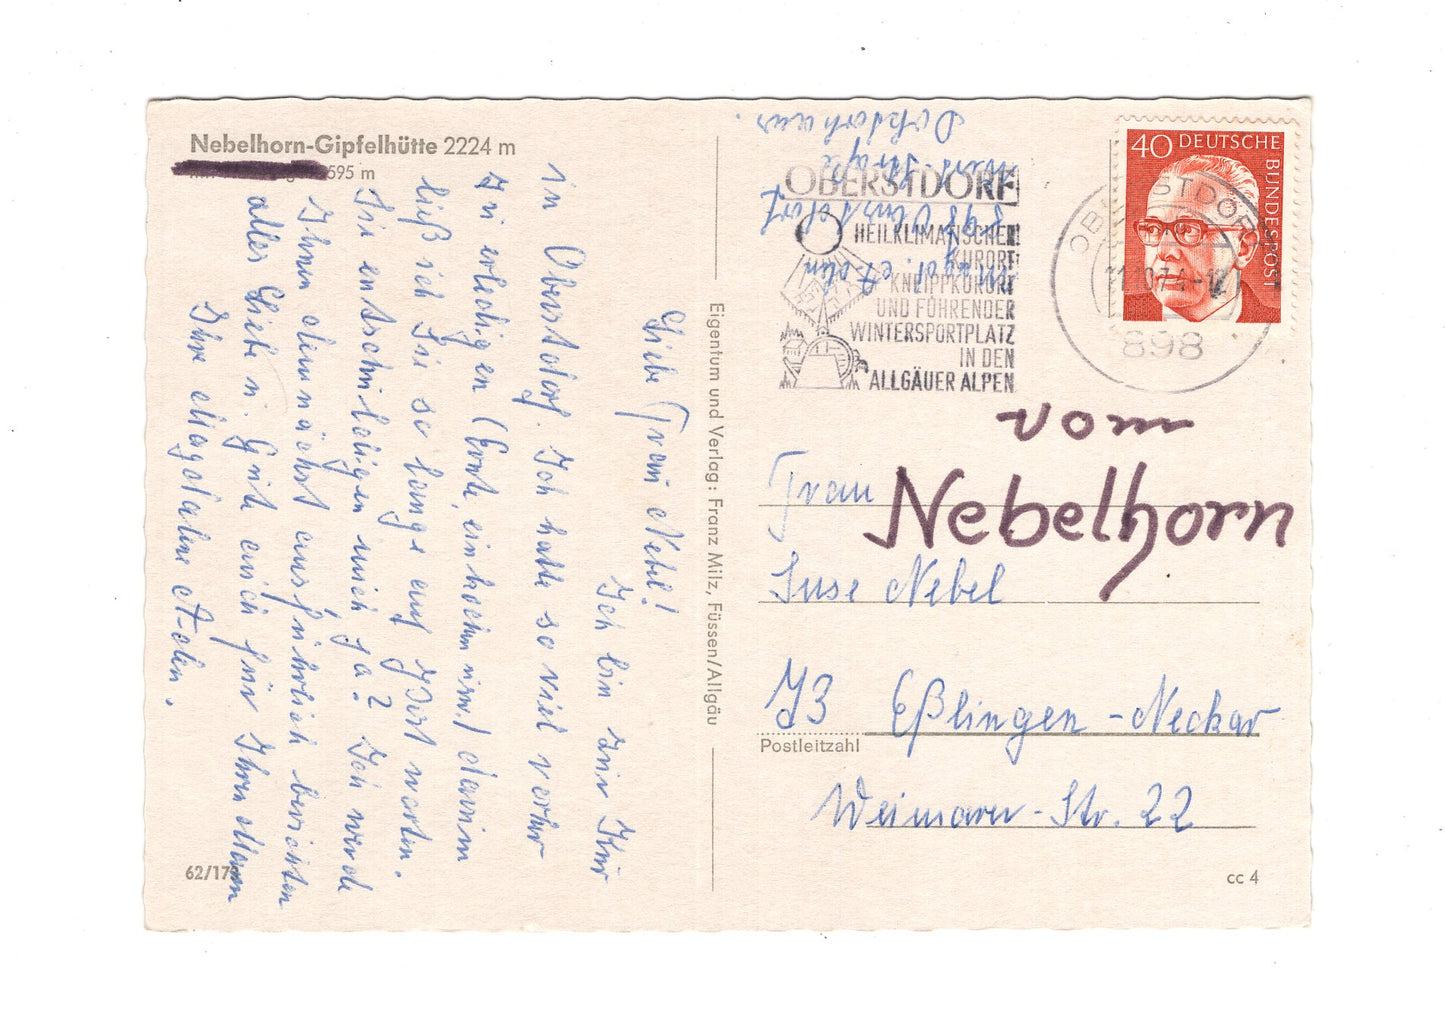 Nebelhorn-Gipfelhütte 2224 m
595 m
Liebe Frau Nebel!
Ich bin zur Kur
in Oberstdorf. Ich hatte so viel vorher
zu erledigen (Ernte, einkochen usw.) darum
ließ ich Sie so lange auf Post warten.
Sie entschuldigen mich, ja? Ich werde
Ihnen demnächst ausführlich berichten
alles Liebe u. Gute auch für Ihren Mann
Ihre Magdalene Aden.
62/173
Eigentum und Verlag: Franz Milz, Füssen/Allgäu
Magd. Aden
898 Oberstdorf
OBERSTDORF
HEILKLIMATISCHER
KURORT
KNEIPPKURORT
UND FÜHRENDER
WINTERSPORTPLATZ
IN DEN
ALLGÄUER ALPEN
OBERSTDORF
11.10.74-12
898
40 DEUTSCHE
BUNDESPOST
vom
Nebelhorn
Frau
Suse Nebel
73 Eßlingen-Neckar
Postleitzahl
Weimarer-Str. 22
cc 4